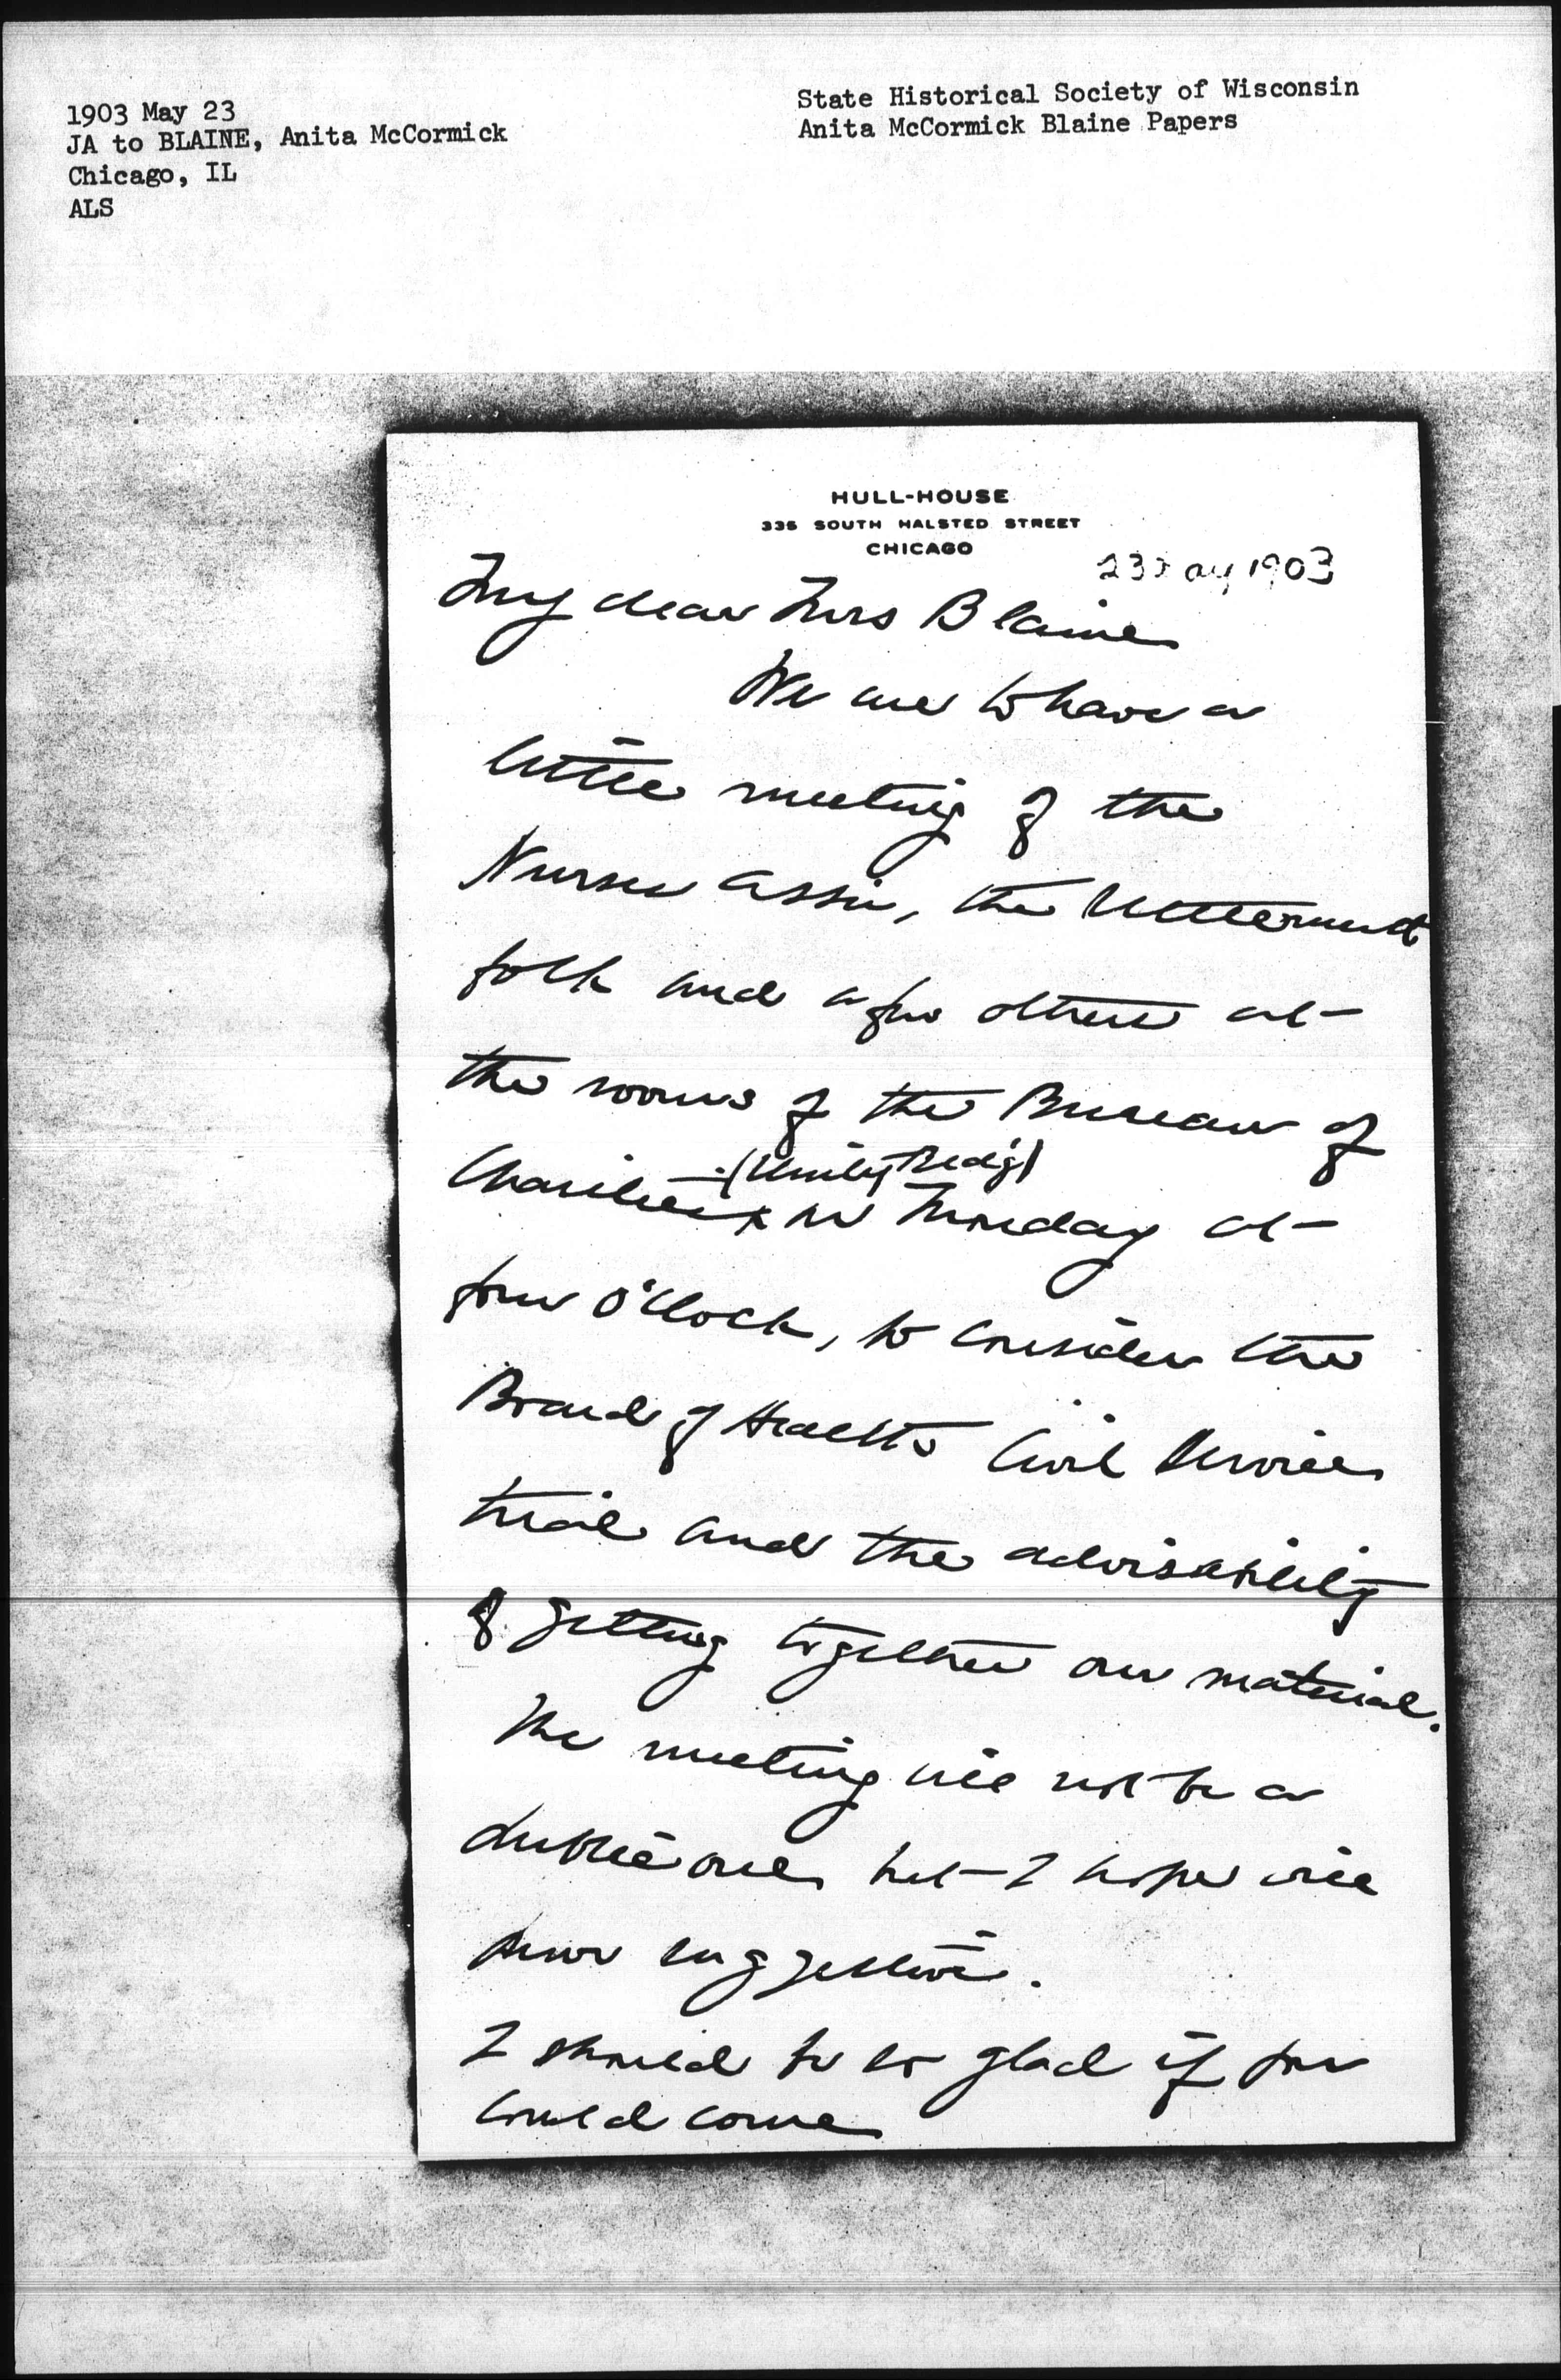 1903 May 23
JA to BLAINE, Anita McCormick
Chicago, IL
ALS
State Historical Society of Wisconsin
Anita McCormick Blaine Papers
HULL-HOUSE
335 SOUTH HALSTED STREET
CHICAGO
23 May 1903
My dear Mrs Blaine
We are to have a
little meeting of the
Nurses Assn, the Settlement
folk and a few others at
the rooms of the Bureau of
(Unity Bld'g)
Charities x on Tuesday at
four o'clock, to consider the
Board of Health Civil Service
trial and the advisability
of getting together our material.
The meeting will not be a
public one, but I hope will
prove suggestive.
I should be so glad if you
could come